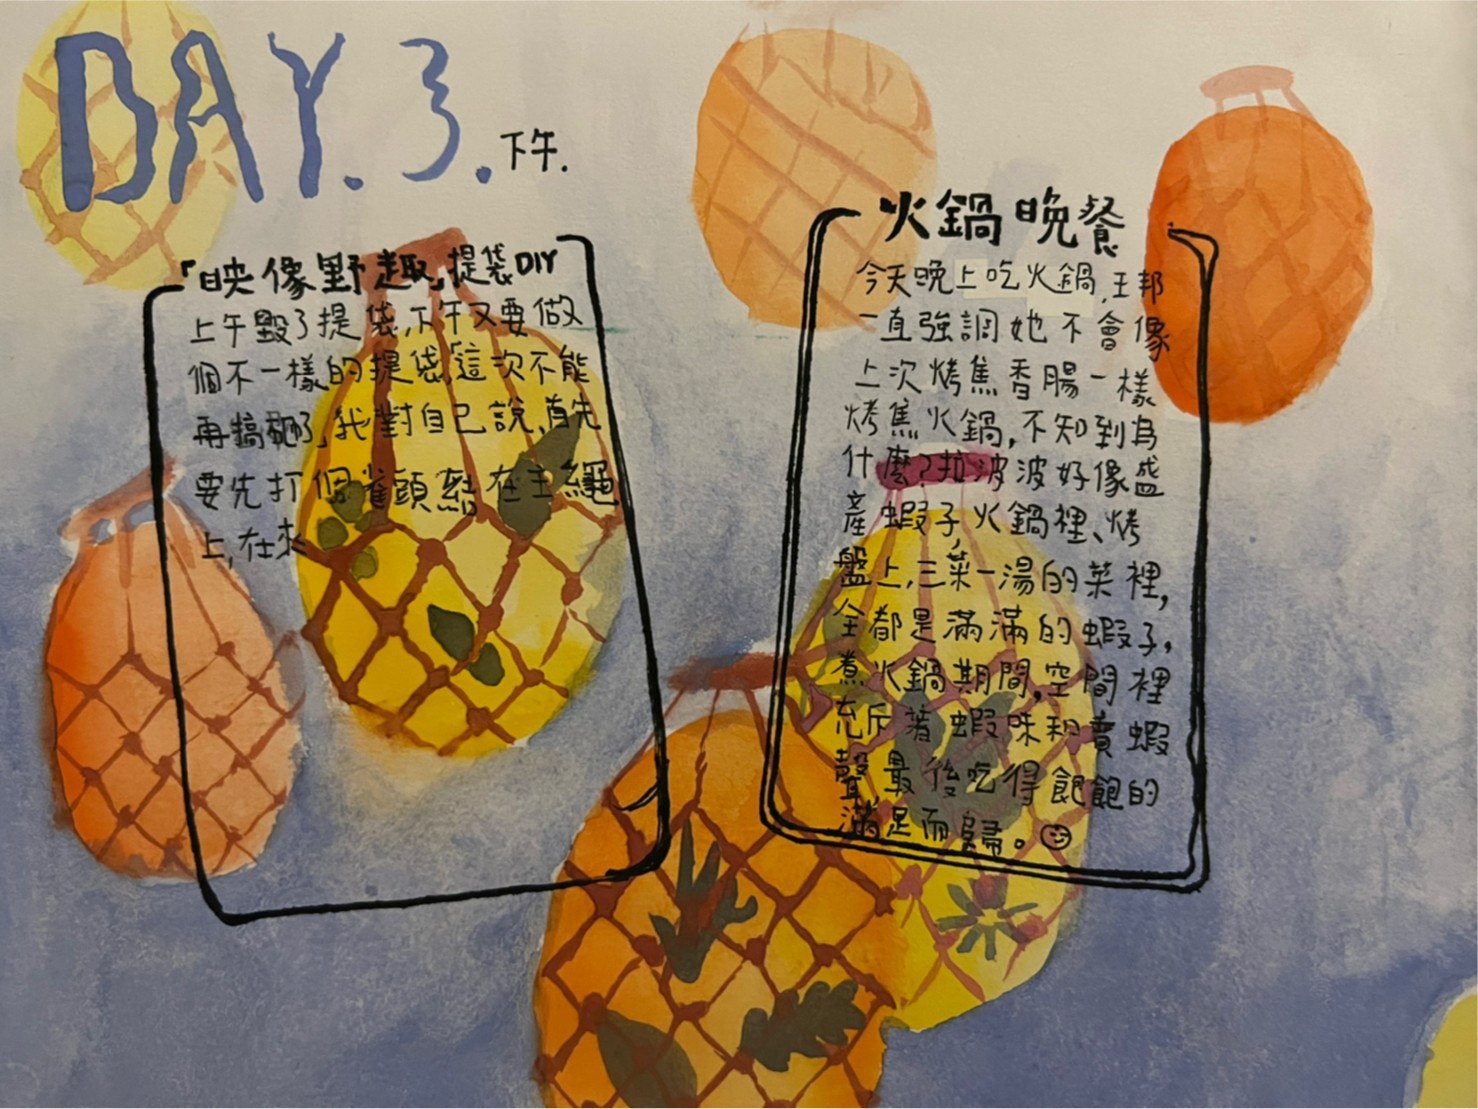 DAY.3.下午.
「映像野趣」提袋DIY
上午毀了提袋,下午又要做
個不一樣的提袋,這次不能
再搞砸了,我對自己說,首先
要先打個雀頭結在主繩
上,在來
火鍋晚餐
今天晚上吃火鍋,王邦
一直強調她不會像
上次烤焦香腸一樣
烤焦火鍋,不知到為
什麼?拉波波好像盛
產蝦子,火鍋裡、烤
盤上,三菜一湯的菜裡,
全都是滿滿的蝦子,
煮火鍋期間,空間裡
充斥著蝦味和賣蝦
聲,最後吃得飽飽的
滿足而歸。☺